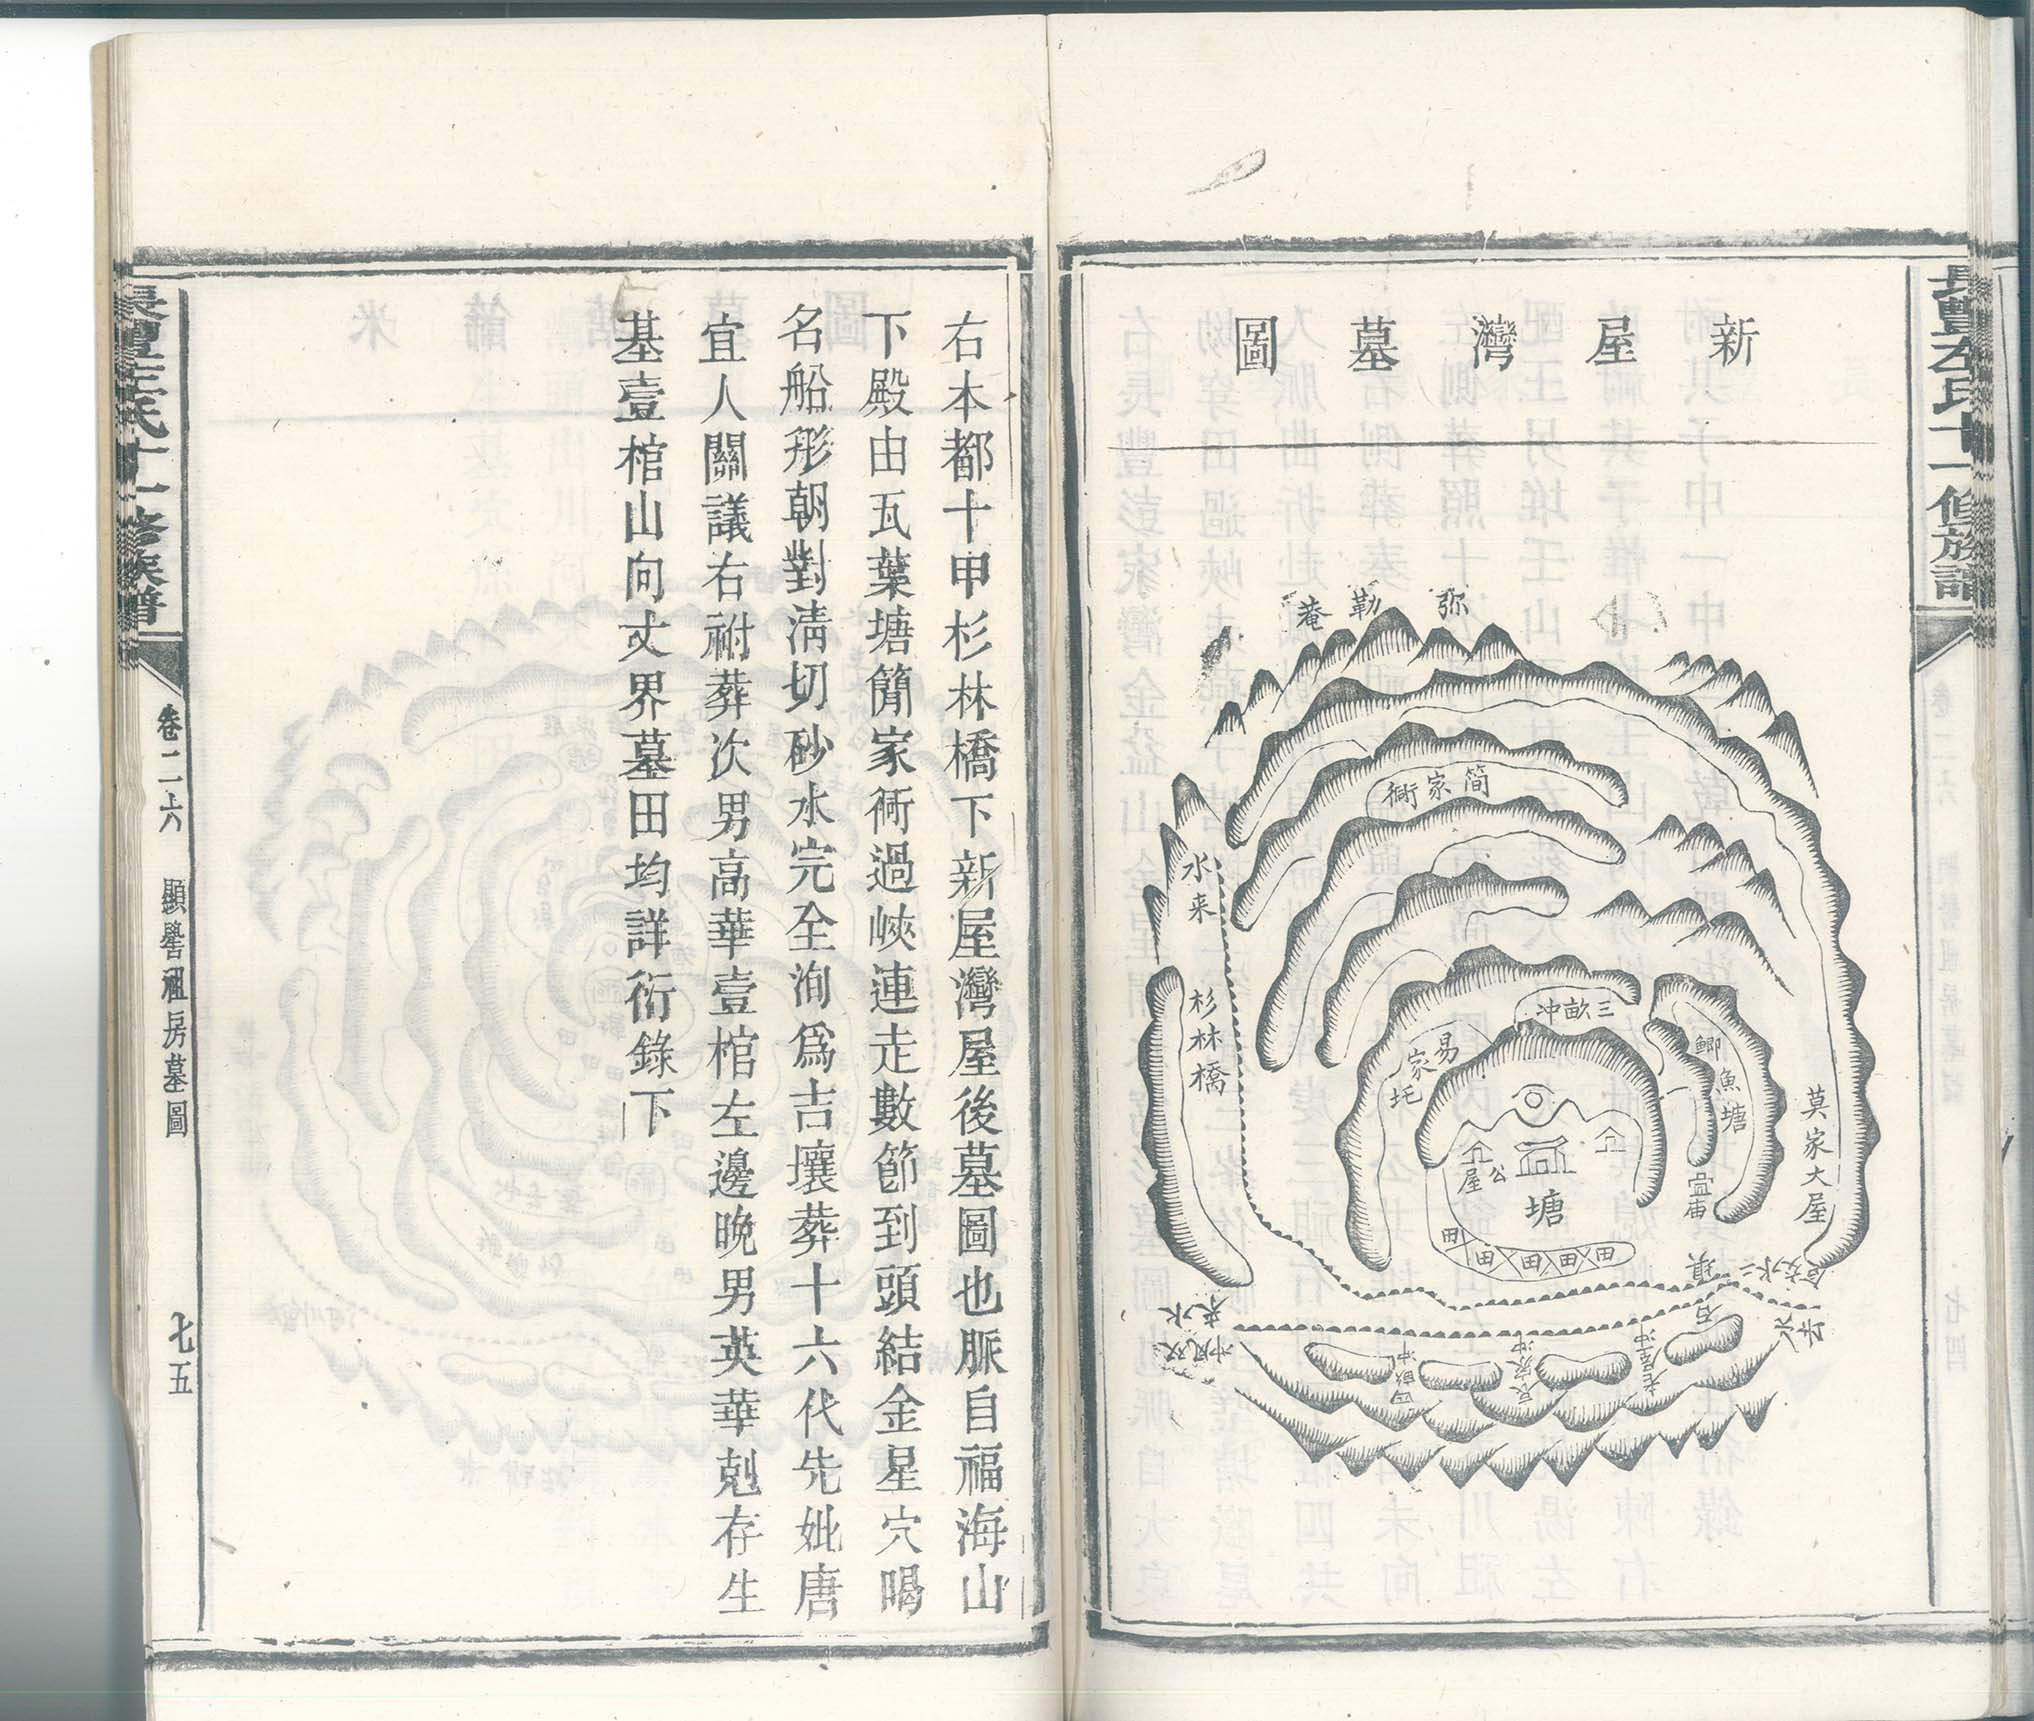 新屋灣墓圖
弥勒菴
簡家衕
水来
杉林橋
三畝冲
易家坨
鯽魚塘
莫家大屋
公屋
塘
田
田
田
田
田
来水
双凤冲
四畝冲
長家冲
老屋冲
右本都十甲杉林橋下新屋灣屋後墓圖也脈自福海山
下殿由瓦葉塘簡家衕過峽連走數節到頭結金星穴喝
名船形朝對清切砂水完全洵爲吉壤葬十六代先妣唐
宜人關議右祔葬次男高華壹棺左邊晩男英華剋存生
基壹棺山向丈界墓田均詳衕錄下
長豐左氏十一修族譜
卷二六
顯譽祖房墓圖
七五